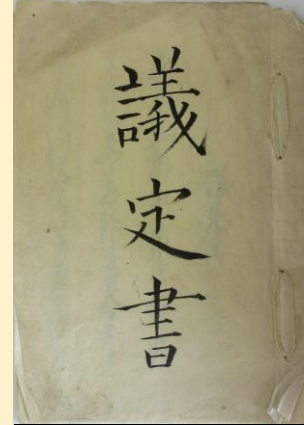 議定書